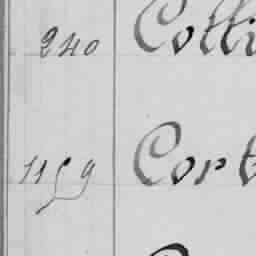 240 Colli
1159 Cort